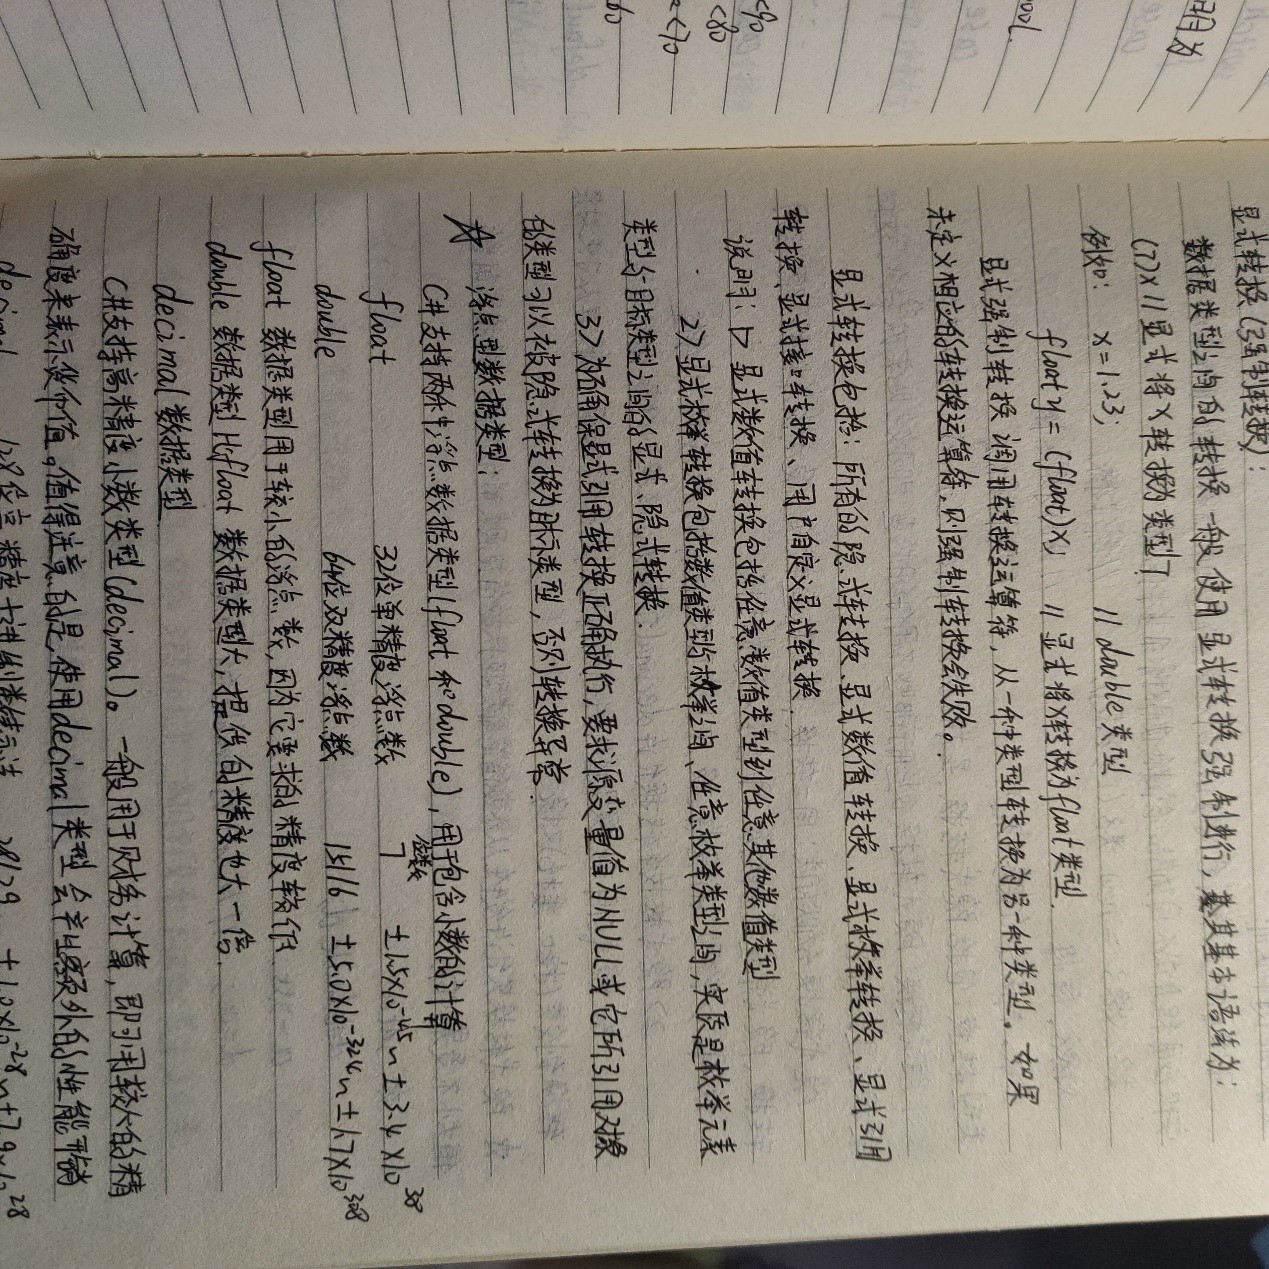 显式转换(强制转换):
数据类型之间的转换一般使用显式转换强制进行,其基本语法为:
(T)x // 显式将x转换为类型T
例如: x=1.23; // double类型
float y = (float)x; // 显式将x转换为float类型.
显式强制转换调用转换运算符,从一种类型转换为另一种类型。如果
未定义相应的转换运算符,则强制转换会失败。
显式转换包括:所有的隐式转换、显式数值转换、显式枚举转换、显式引用
转换、显式接口转换、用户自定义显式转换.
说明: 1> 显式数值转换包括任意数值类型到任意其他数值类型
2> 显式枚举转换包括数值类型与枚举之间、任意枚举类型之间,实质是枚举元素
类型与目标类型之间的显式、隐式转换.
3> 为确保显式引用转换正确执行,要求源变量值为NULL或它所引用对象
的类型可以被隐式转换为目标类型,否则转换异常.
☆ 浮点型数据类型:
C#支持两种浮点数据类型(float和double),用于包含小数的计算
float 32位单精度浮点数 7位数 ±1.5×10⁻⁴⁵ ~ ±3.4×10³⁸
double 64位双精度浮点数 15/16 ±5.0×10⁻³²⁴ ~ ±1.7×10³⁰⁸
float数据类型用于较小的浮点数,因为它要求的精度较低
double数据类型比float数据类型大,提供的精度也大一倍.
decimal数据类型
C#支持高精度小数类型(decimal)。一般用于财务计算,即可用较大的精
确度来表示货币价值。值得注意的是,使用decimal类型会产生额外的性能开销
decimal 128位高精度十进制数表示法 28/29 ±1.0×10⁻²⁸ ~ ±7.9×10²⁸
<90
<80
<70
60
ool.